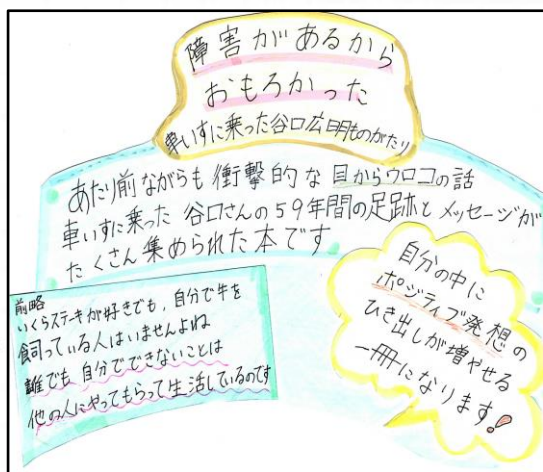 障害があるから
おもろかった
車いすに乗った谷口広明ものがたり
あたり前ながらも衝撃的な目からウロコの話
車いすに乗った 谷口さんの59年間の足跡とメッセージが
たくさん集められた本です
前略
いくらステーキが好きでも、自分で牛を
飼っている人はいませんよね
誰でも自分でできないことは
他の人にやってもらって生活しているのです
自分の中に
ポジティブ発想の
ひき出しが増やせる
一冊になります!